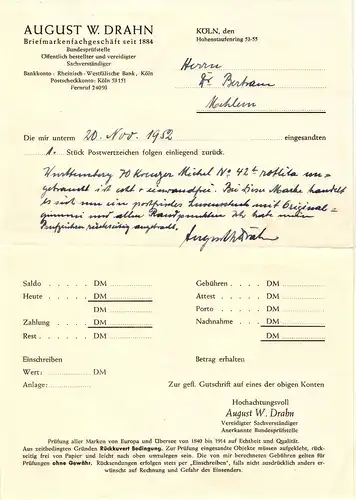 AUGUST W. DRAHN
Briefmarkenfachgeschäft seit 1884
Bundesprüfstelle
Öffentlich bestellter und vereidigter
Sachverständiger
Bankkonto: Rheinisch-Westfälische Bank, Köln
Postscheckkonto: Köln 53 151
Fernruf 2 40 50
KÖLN, den
Hohenstaufenring 53-55
Herrn
Dr. Bertram
Mehlem
Die mir unterm 20. Nov. 1952 eingesandten
1. Stück Postwertzeichen folgen einliegend zurück.
Württemberg 70 Kreuzer Michel No 42 rotlila un=
gebraucht ist echt + einwandfrei. Bei diese Marke handelt
es sich um ein postfrisches mit Original=
gummi und allen Randpunkten. Ich habe mein
Prüfzeichen rückseitig angebracht.
August W Drahn
Saldo . . . . . DM
Heute . . . . . DM
DM
Zahlung . . . . DM
Rest . . . . . . DM
Gebühren . . . . DM
Attest . . . . . DM
Porto . . . . . DM
Nachnahme . . . DM
DM
Einschreiben
Wert: DM
Anlage:
Betrag erhalten
Zur gefl. Gutschrift auf eines der obigen Konten
Hochachtungsvoll
August W. Drahn
Vereidigter Sachverständiger
Anerkannte Bundesprüfstelle
Prüfung aller Marken von Europa und Übersee von 1840 bis 1914 auf Echtheit und Qualität.
Aus zeitbedingten Gründen Rückkuvert Bedingung. Zur Prüfung eingesandte Objekte müssen aufgeklebt, rück-
seitig frei von Papier und leicht nach oben umzulegen sein. Die von mir berechneten Gebühren gelten für
Prüfungen ohne Gewähr. Rücksendungen erfolgen stets per „Einschreiben", falls nicht ausdrücklich anders er-
wünscht auf Rechnung und Gefahr des Einsenders.